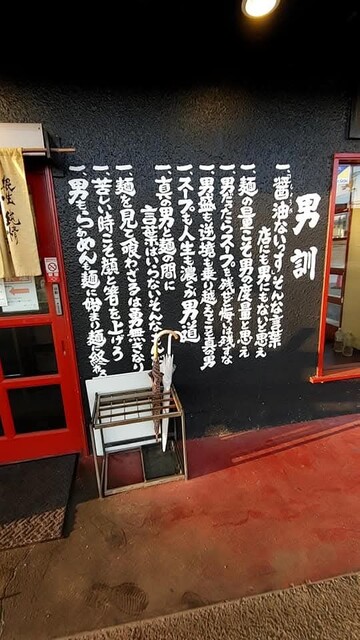 男訓
一、醤油ないっす!そんな言葉
店にも男にもないと思え
一、麺の量こそ男の度量と思え
一、男だったらスープ残せど悔は残すな
一、男盛も逆境も乗り越えてこそ真の男
一、スープも人生も濃い男道
一、真の男と麺の間に
言葉はいらないそんな
一、麺を見て喰わざるは勇無きなり
一、苦しい時こそ顔と箸を上げろ
一、男もらぁめんも麺に始まり麺に終わる